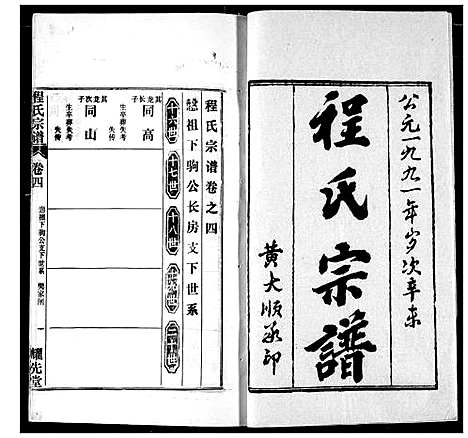 公元一九九一年岁次辛未
程氏宗譜
黄大顺承印
程氏宗谱卷之四
祖下驹公长房支下世系
十六世
十七世
十八世
十九世
二十世
其龙长子
同高
生卒葬失考
失传
其龙次子
同山
生卒葬失考
失传
程氏宗谱
卷四
祖下驹公支下世系
一
耀先堂